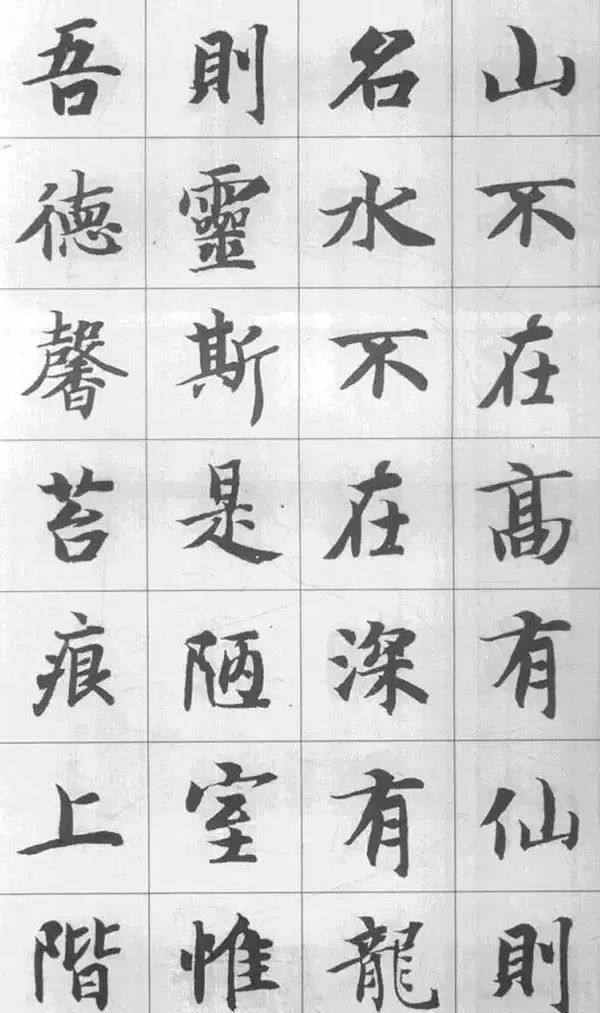 山不在高有仙則
名水不在深有龍
則靈斯是陋室惟
吾德馨苔痕上階